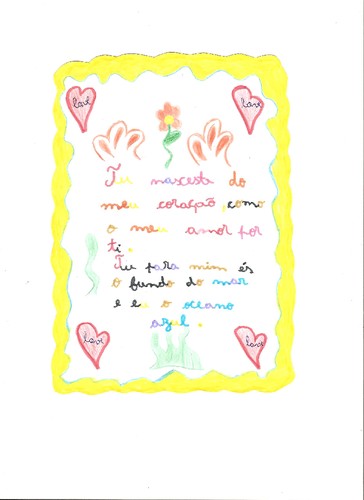 love
love
Tu nasceste do
meu coração, como
o meu amor por
ti.
Tu para mim és
o fundo do mar
e eu o oceano
azul.
love
love